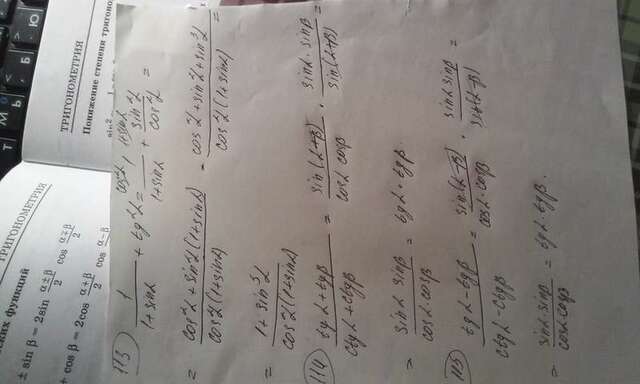 ских функций
ТРИГОНОМЕТРИЯ
± sin β = 2sin (α±β)/2 cos (α∓β)/2
+ cos β = 2cos (α+β)/2 cos (α−β)/2
ТРИГОНОМЕТРИЯ
Понижение степени тригоно
113) 1/(1+sinα) + tg²α = cos²α 1/(1+sinα) + 1+sinα sin²α/cos²α =
= (cos²α + sin²α(1+sinα))/(cos²α(1+sinα)) = (cos²α + sin²α + sin³α)/(cos²α(1+sinα)) =
= (1+sin³α)/(cos²α(1+sinα))
114) (tgα+tgβ)/(ctgα+ctgβ) = sin(α+β)/(cosα cosβ) · (sinα·sinβ)/sin(α+β) =
= (sinα sinβ)/(cosα·cosβ) = tgα·tgβ.
115) (tgα−tgβ)/(ctgα−ctgβ) = sin(α−β)/(cosα·cosβ) · (sinα sinβ)/sin(α−β) =
= (sinα·sinβ)/(cosα cosβ) = tgα·tgβ.